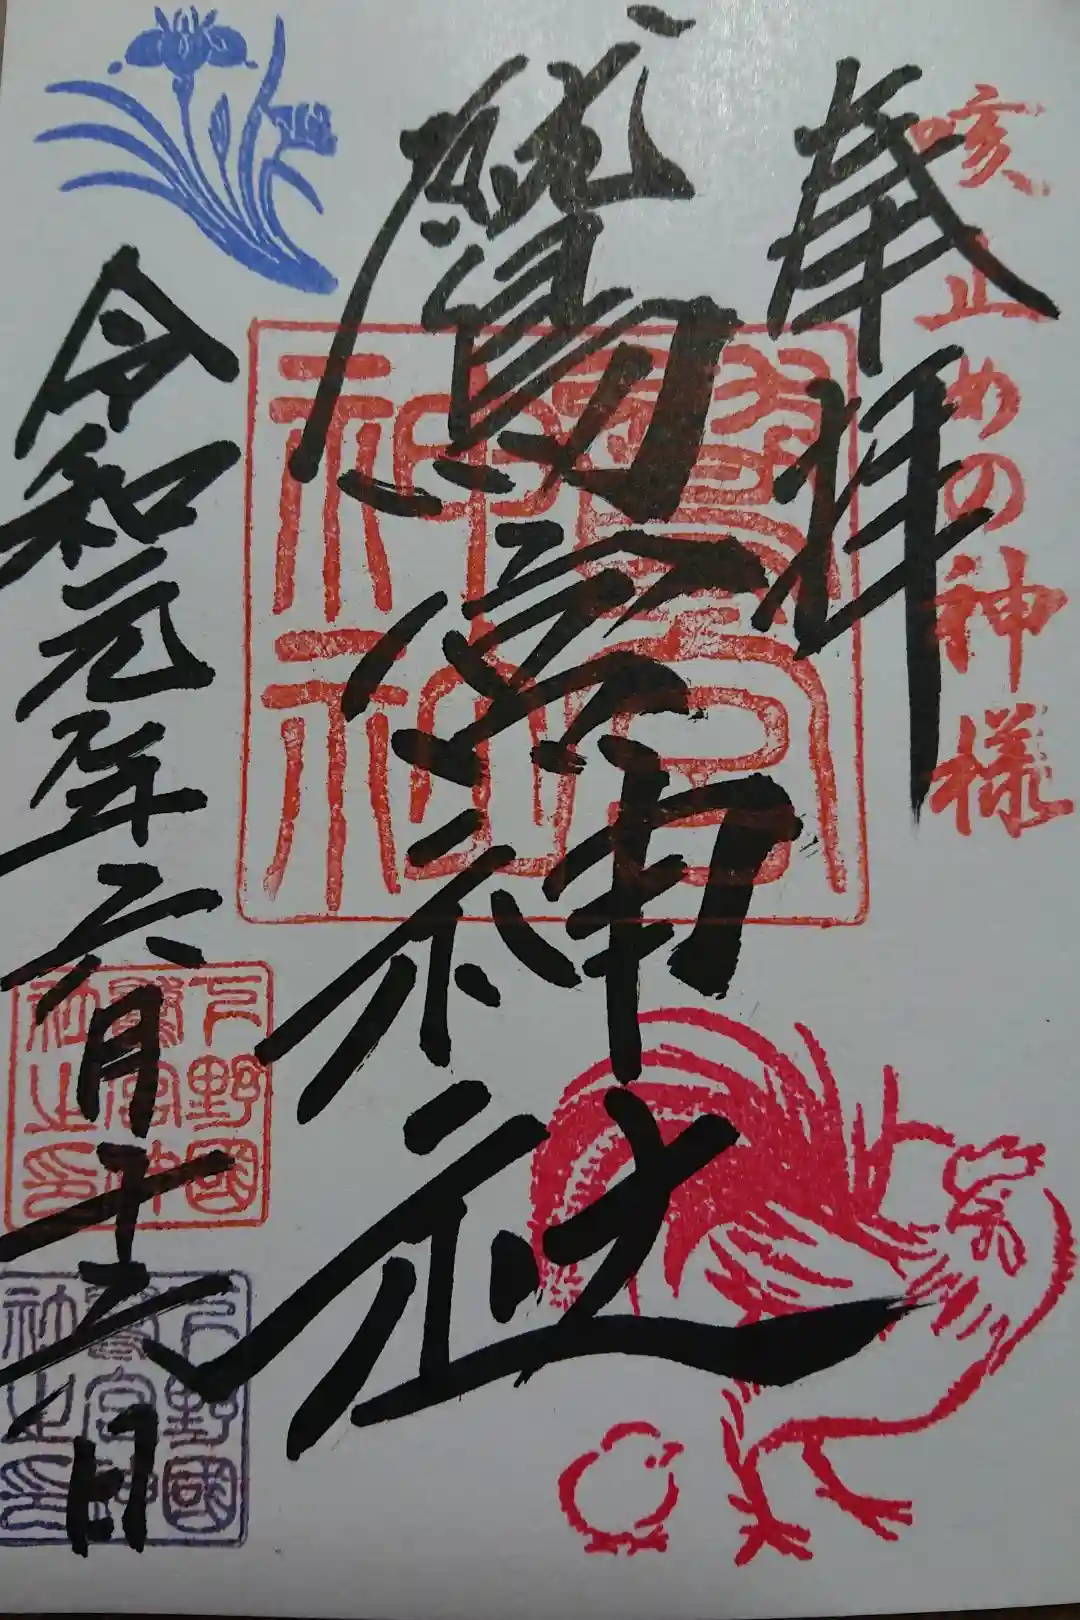 咳止めの神様
奉拝
鷲宮神社
鷲宮神社
令和元年六月十日
下野國鷲宮神社之印
下野國鷲宮神社之印